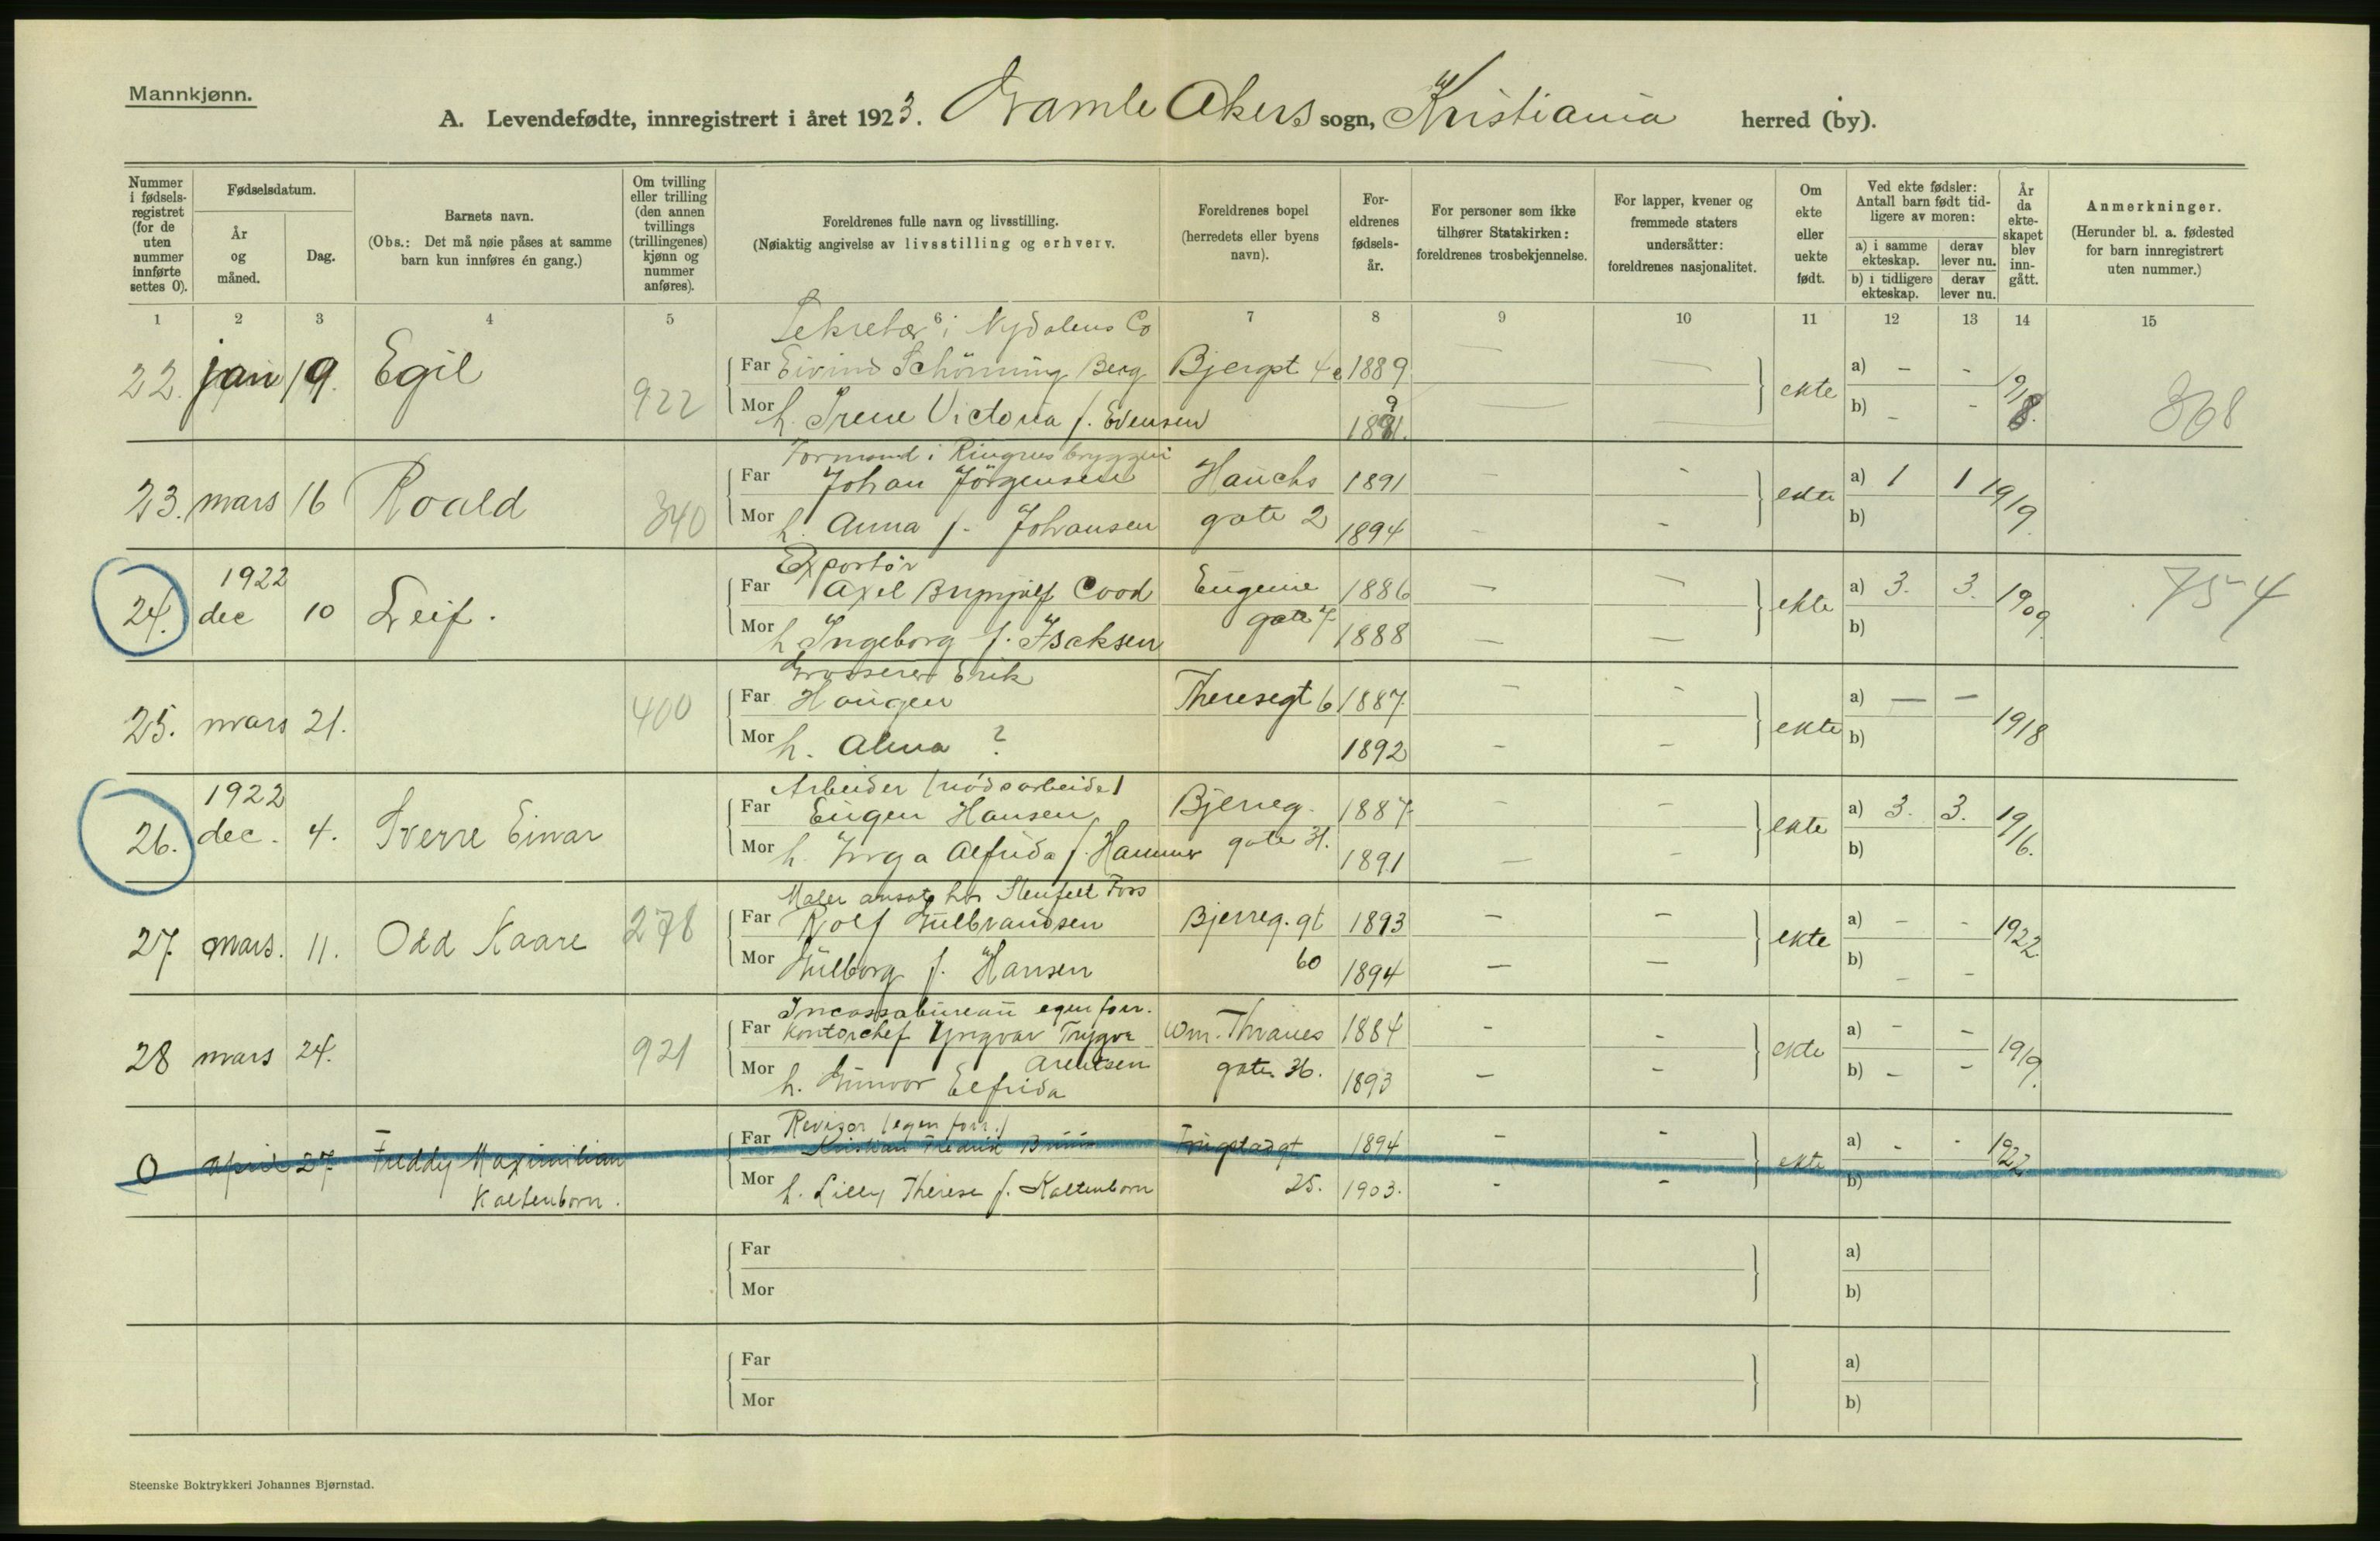 Mannkjønn.
A. Levendefødte, innregistrert i året 1923. Gamle Akers sogn, Kristiania herred (by).
Nummer i fødsels-registret (for de uten nummer innførte settes 0).
Fødselsdatum.
År og måned.
Dag.
Barnets navn.
(Obs.: Det må nøie påses at samme barn kun innføres én gang.)
Om tvilling eller trilling (den annen tvillings (trillingenes) kjønn og nummer anføres).
Foreldrenes fulle navn og livsstilling.
(Nøiaktig angivelse av livsstilling og erhverv.
Foreldrenes bopel (herredets eller byens navn).
For-eldrenes fødsels-år.
For personer som ikke tilhører Statskirken: foreldrenes trosbekjennelse.
For lapper, kvener og fremmede staters undersåtter: foreldrenes nasjonalitet.
Om ekte eller uekte født.
Ved ekte fødsler: Antall barn født tid-ligere av moren:
a) i samme ekteskap.
derav lever nu.
b) i tidligere ekteskap.
derav lever nu.
År da ekte-skapet blev inn-gått.
Anmerkninger.
(Herunder bl. a. fødested for barn innregistrert uten nummer.)
1 2 3 4 5 6 7 8 9 10 11 12 13 14 15
Sekretær i Nydalens Co
22. jan 19. Egil 922 Far Eivind Schönning Berg Bjergst 4e 1889 — — ekte a) - - 1918. 368
Mor h. Irene Victoria f. Evensen — — b) - -
Formand i Ringnes bryggeri
23. mars 16 Roald 340 Far Johan Jörgensen Hauchs 1891 - - ekte a) 1 1 1919.
Mor h. Anna f. Johansen gate 2 1894 - - b)
Exportör
24. 1922 dec 10 Leif. Far Axel Brynjulf Cood Eugenie 1886 - - ekte a) 3. 3. 1909. 754
Mor h Ingeborg f. Isaksen gate 7 1888 - - b)
Grosserer Erik
25. mars 21. 400 Far Haugen Theresegt 6 1887. - - ekte a) - - 1918
Mor h. Alma ? 1892 - - b)
Arbeider (nödsarbeide)
26. 1922 dec. 4. Sverre Einar Far Eugen Hansen Bjerreg. 1887. - - ekte a) 3. 3. 1916.
Mor h. Inga Alfrida f. Hammer gate 31. 1891 - - b)
Maler ansat hos Stenfelt Foss
27. mars. 11. Odd Kaare 278 Far Rolf Gulbrandsen Bjerreg. gt 1893 - - ekte a) - - 1922.
Mor Gulborg f. Hansen 60 1894 - - b) - -
Incassobureau egen forr.
28 mars 24. 921 Far Kontorchef Yngvar Trygve Wm. Thranes 1884 - - ekte a) - - 1919.
Arentsen
Mor h. Gunvor Elfrida gate 36. 1893 - - b) - -
Revisor (egen forr.)
0 april 27. Freddy Maximilian Far Kristian Fredrik Bruun Frugstadgt 1894 - - ekte a) - - 1922
Kaltenborn. Mor h. Lilly Therese f. Kaltenborn 25. 1903. - - b)
Far a)
Mor b)
Far a)
Mor b)
Steenske Boktrykkeri Johannes Bjørnstad.